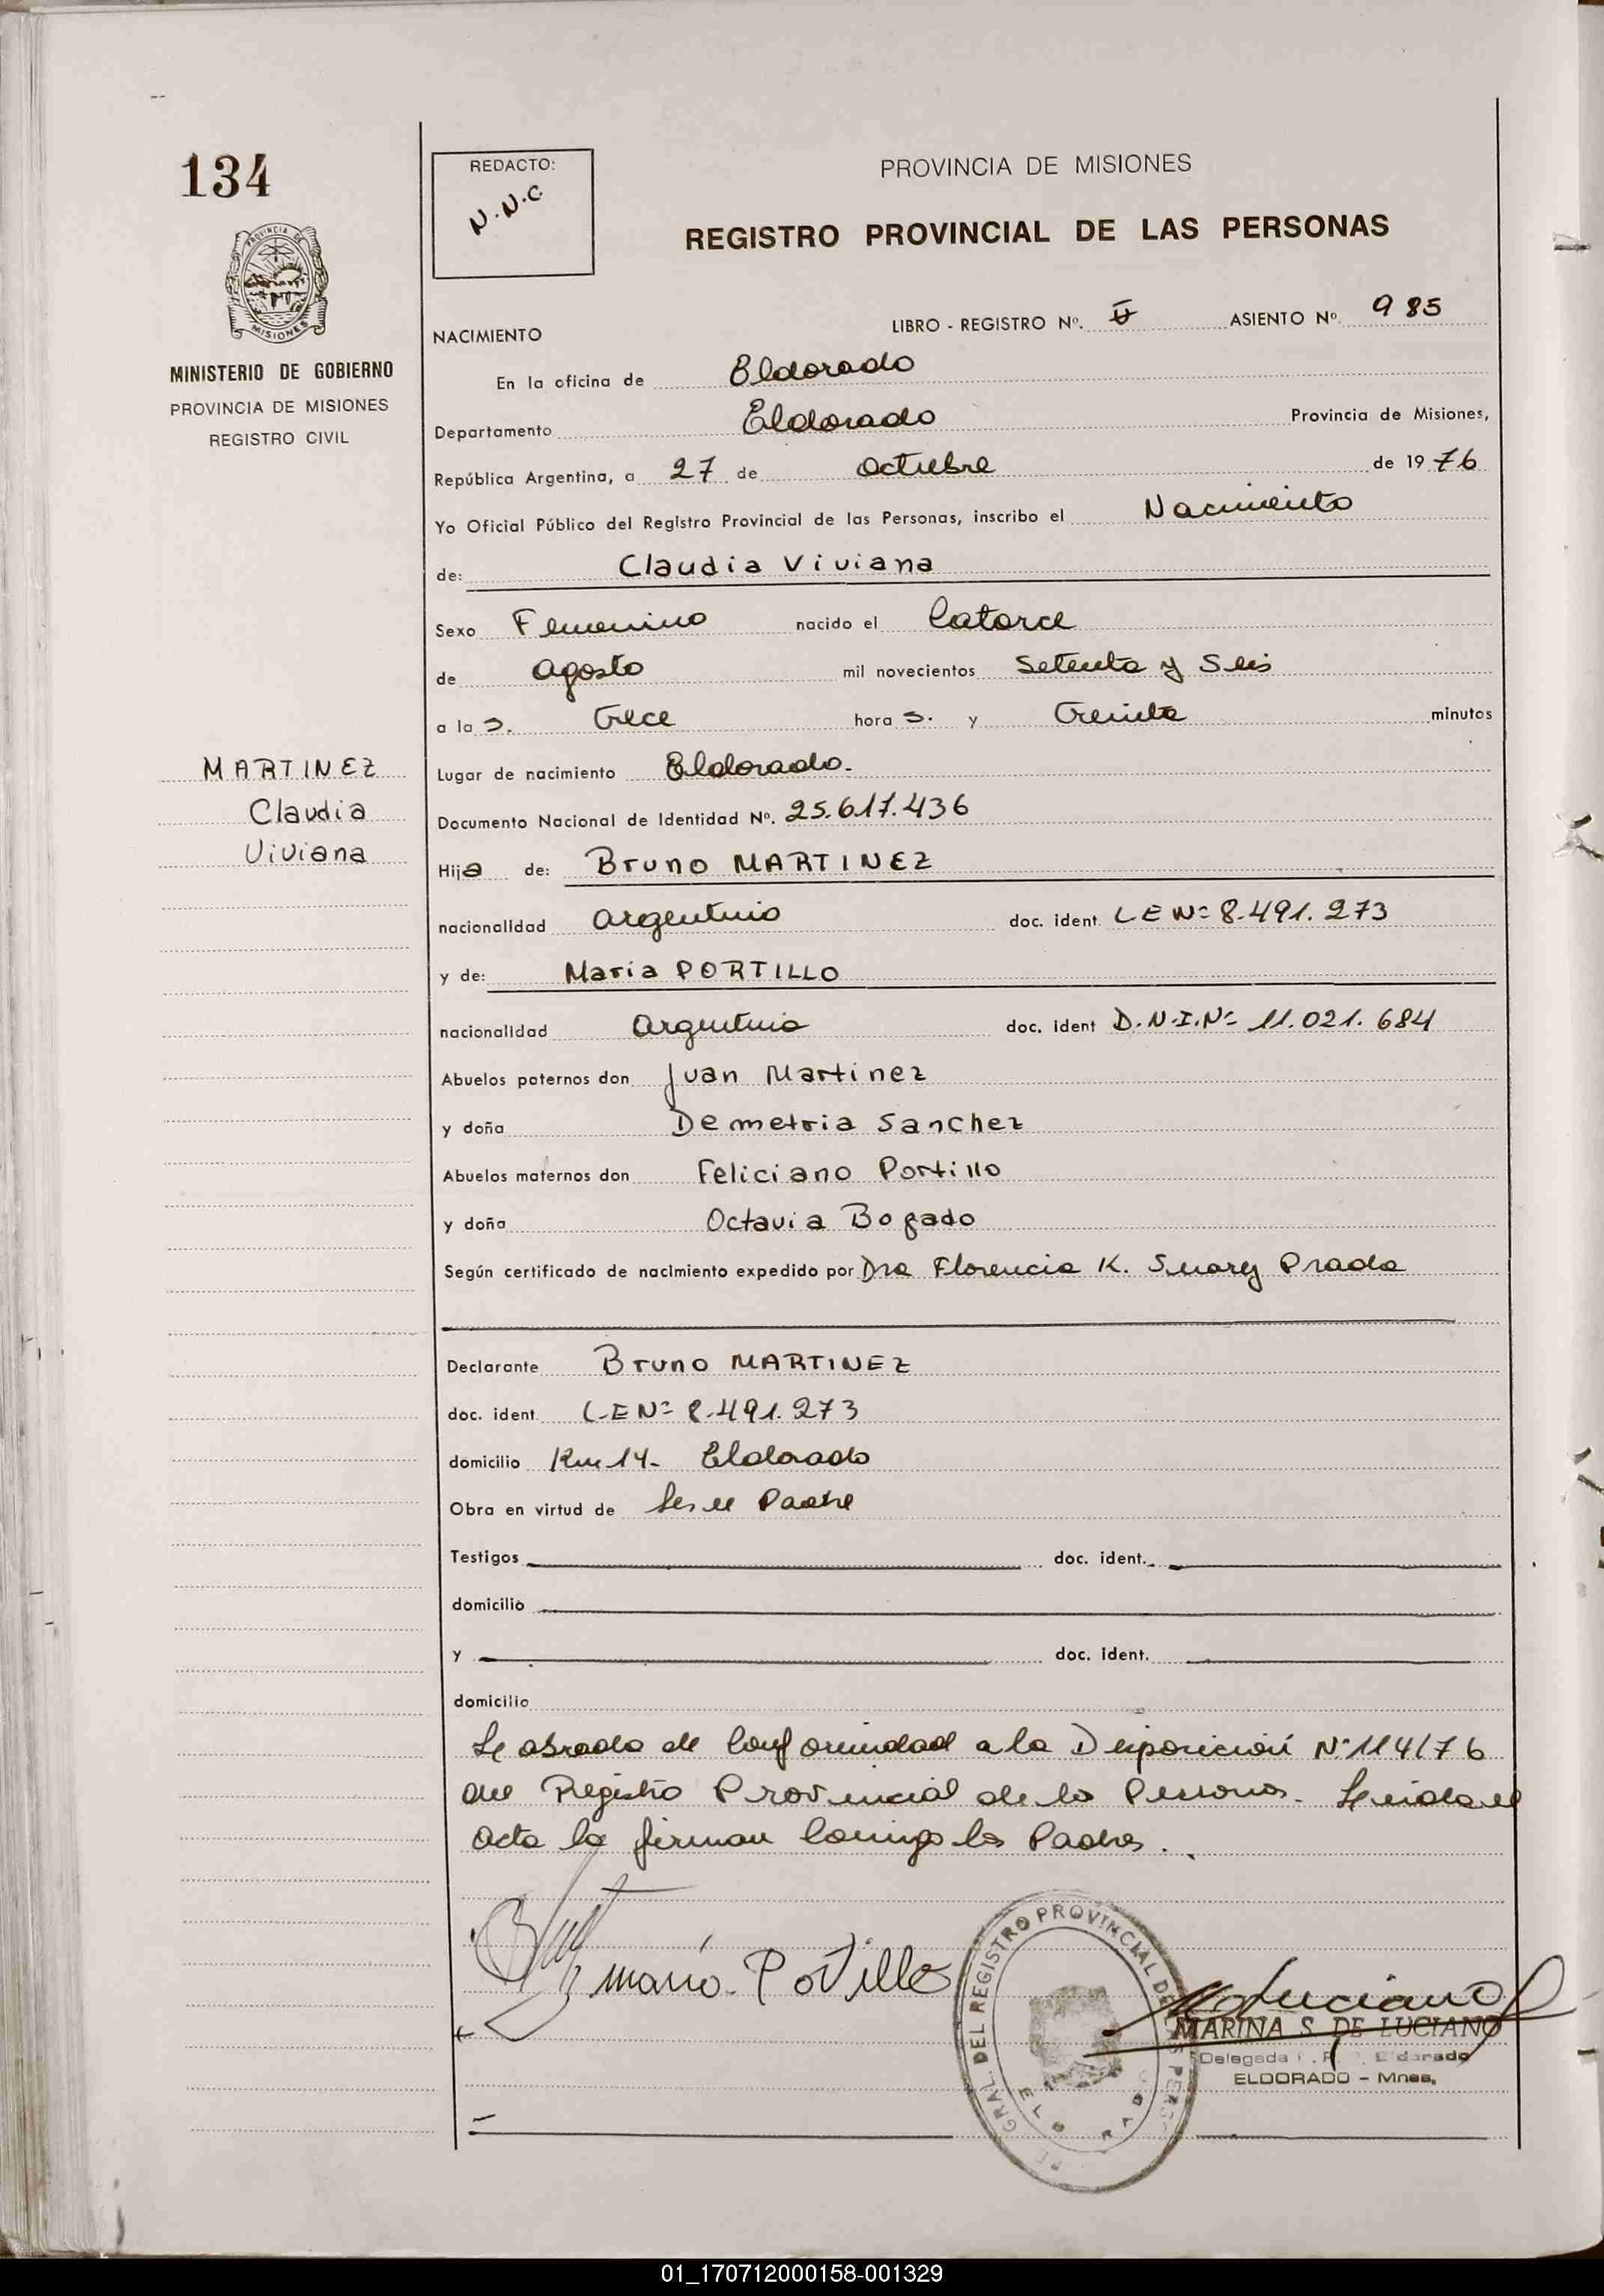 134
MINISTERIO DE GOBIERNO
PROVINCIA DE MISIONES
REGISTRO CIVIL
MARTINEZ
Claudia
Viviana
REDACTO:
N.N.C.
PROVINCIA DE MISIONES
REGISTRO PROVINCIAL DE LAS PERSONAS
NACIMIENTO
LIBRO - REGISTRO Nº. ASIENTO Nº. 985
En la oficina de Eldorado
Departamento Eldorado Provincia de Misiones,
República Argentina, a 27 de Octubre de 1976
Yo Oficial Público del Registro Provincial de las Personas, inscribo el Nacimiento
de: Claudia Viviana
Sexo Femenino nacido el Catorce
de agosto mil novecientos Setenta y Seis
a la s. trece hora s. y treinta minutos
Lugar de nacimiento Eldorado.
Documento Nacional de Identidad Nº. 25.617.436
Hija de: Bruno MARTINEZ
nacionalidad argentino doc. ident. L E Nº 8.491.273
y de: Maria PORTILLO
nacionalidad argentina doc. ident D.N.I.Nº 11.021.684
Abuelos paternos don Juan Martinez
y doña Demetria Sanchez
Abuelos maternos don Feliciano Portillo
y doña Octavia Bogado
Según certificado de nacimiento expedido por Dra Florencia K. Suarez Prada
Declarante Bruno MARTINEZ
doc. ident. L-E Nº 8.491.273
domicilio Km 14- Eldorado
Obra en virtud de Ser el Padre
Testigos doc. ident.
domicilio
y doc. ident.
domicilio
Labrada de Conformidad a la Disposición Nº 114/76
del Registro Provincial de las Personas. Leida el
Acta la firman Conmigo los Padres.
Maria Portillo
GRAL DEL REGISTRO PROVINCIAL DE LAS PERS
MARINA S. DE LUCIANO
Delegada Eldorado
ELDORADO - Mnes.
01_170712000158-001329